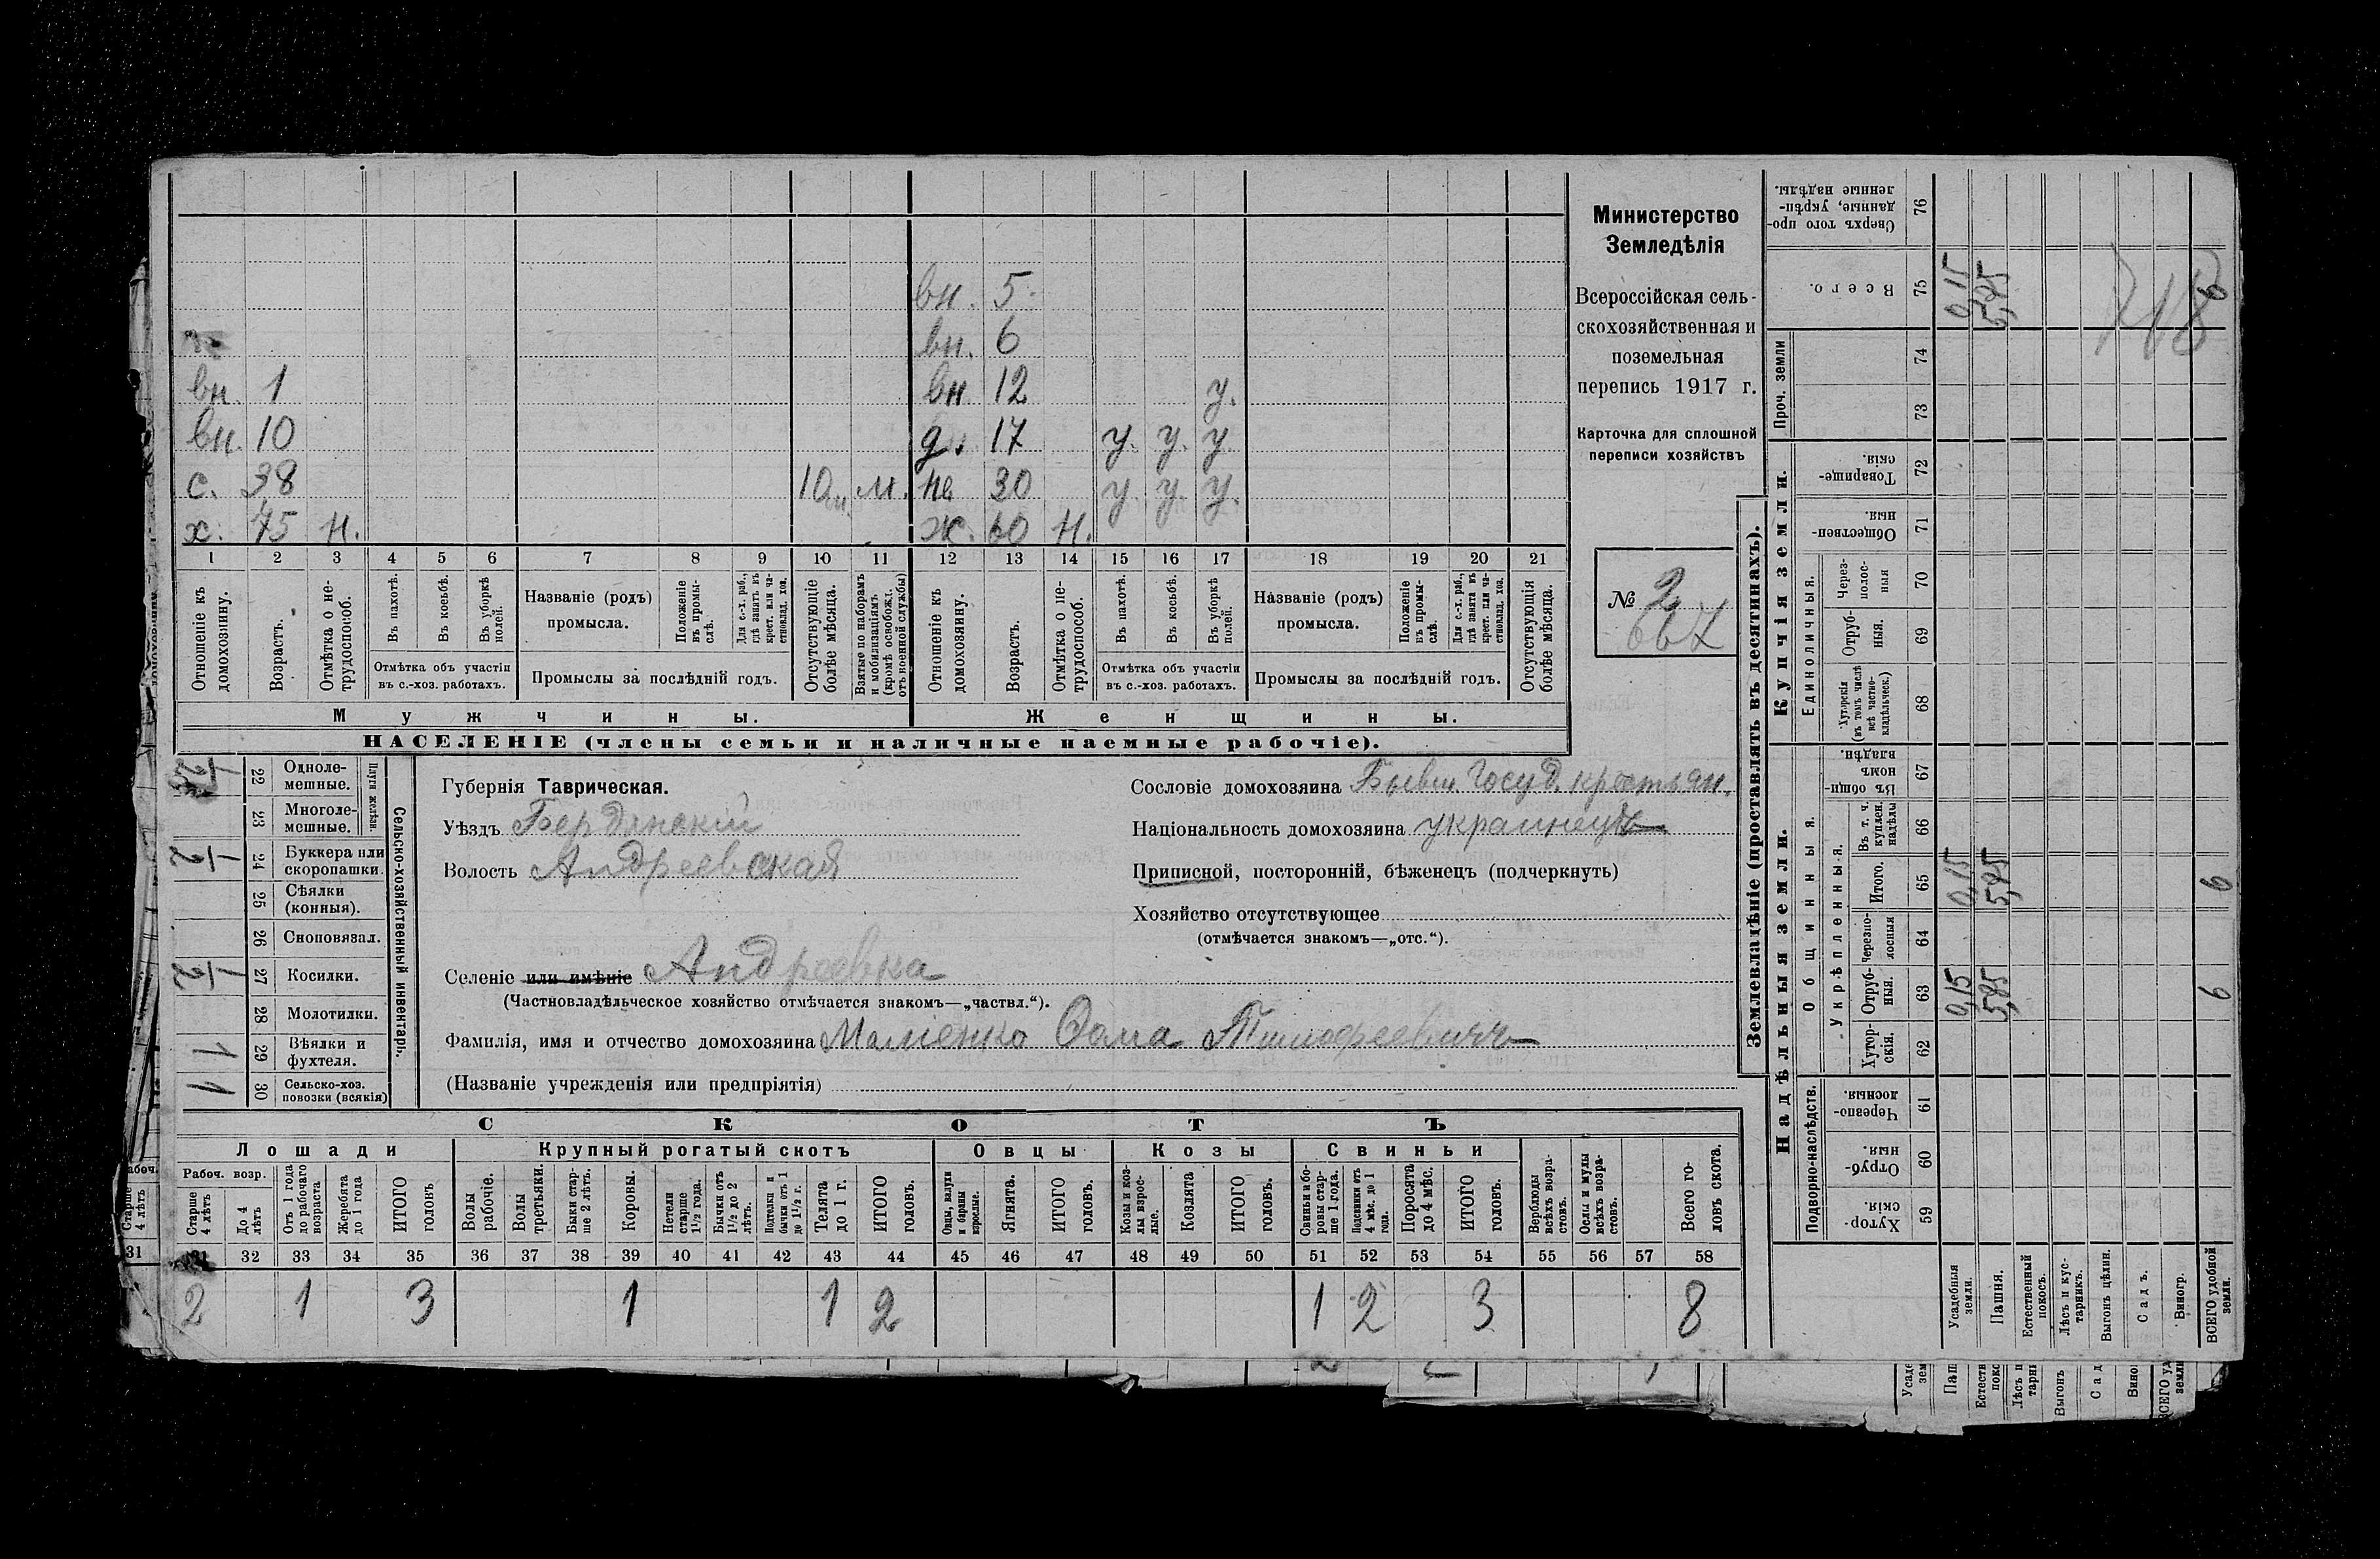 вн. 5.
вн. 6
вн. 1 вн 12 у.
вн. 10 д. 17 у. у. у.
с. 38 10 м. м. не 30 у. у. у.
х. 75 н. ж. 60 н.
1 2 3 4 5 6 7 8 9 10 11 12 13 14 15 16 17 18 19 20 21
Отношеніе къ домохозяину.
Возрастъ.
Отмѣтка о не-трудоспособ.
Въ пахотѣ.
Въ косьбѣ.
Въ уборкѣ полей.
Отмѣтка объ участіи
въ с.-хоз. работахъ.
Названіе (родъ)
промысла.
Положеніе въ промы-слѣ.
Для с.-х. раб., гдѣ занятъ въ крест. или ча-стновлад. хоз.
Промыслы за послѣдній годъ.
Отсутствующіе болѣе мѣсяца.
Взятые по наборамъ и мобилизаціямъ (кромѣ освобожд. отъ военной службы)
Отношеніе къ домохозяину.
Возрастъ.
Отмѣтка о не-трудоспособ.
Въ пахотѣ.
Въ косьбѣ.
Въ уборкѣ полей.
Отмѣтка объ участіи
въ с.-хоз. работахъ.
Названіе (родъ)
промысла.
Положеніе въ промы-слѣ.
Для с.-х. раб., гдѣ занята въ крест. или ча-стновлад. хоз.
Промыслы за послѣдній годъ.
Отсутствующія болѣе мѣсяца.
Мужчины. Женщины.
НАСЕЛЕНІЕ (члены семьи и наличные наемные рабочіе).
Министерство
Земледѣлія
Всероссійская сель-
скохозяйственная и
поземельная
перепись 1917 г.
Карточка для сплошной
переписи хозяйствъ
№ 2
667
Сельско-хозяйственный инвентарь.
Плуги желѣзн.
22 Одноле-мешные.
23 Многоле-мешные.
24 Буккера или скоропашки. 1/2
25 Сѣялки (конныя).
26 Сноповязал.
27 Косилки. 1/2
28 Молотилки.
29 Вѣялки и фухтеля. 1
30 Сельско-хоз. повозки (всякія) 1
Губернія Таврическая.
Уѣздъ Бердянскій
Волость Андреевская
Сословіе домохозяина Бывш. Госуд. крестьян.
Національность домохозяина украинецъ
Приписной, посторонній, бѣженецъ (подчеркнуть)
Хозяйство отсутствующее
(отмѣчается знакомъ—„отс.“).
Селеніе или имѣніе Андреевка
(Частновладѣльческое хозяйство отмѣчается знакомъ—„частвл.“).
Фамилія, имя и отчество домохозяина Маліенко Фома Тимофеевичъ
(Названіе учрежденія или предпріятія)
СКОТЪ
Лошади Крупный рогатый скотъ Овцы Козы Свиньи
Рабоч. возр.
Старше 4 лѣтъ
До 4 лѣтъ
Отъ 1 года до рабочаго возраста
Жеребята до 1 года
ИТОГО головъ
Волы рабочіе.
Волы третьяки.
Быки стар-ше 2 лѣтъ.
Коровы.
Нетели старше 1½ года.
Бычки отъ 1½ до 2 лѣтъ.
Подтелки и бычки отъ 1 до 1½ г.
Телята до 1 г.
ИТОГО головъ.
Овцы, валухи и бараны взрослые.
Ягнята.
ИТОГО головъ.
Козы и коз-лы взрос-лые.
Козлята
ИТОГО головъ.
Свиньи и бо-ровы стар-ше 1 года.
Подсвинки отъ 4 мѣс. до 1 года.
Поросята до 4 мѣс.
ИТОГО головъ.
Верблюды всѣхъ возра-стовъ.
Ослы и мулы всѣхъ возра-стовъ.
Всего го-ловъ скота.
31 32 33 34 35 36 37 38 39 40 41 42 43 44 45 46 47 48 49 50 51 52 53 54 55 56 57 58
2 1 3 1 1 2 1 2 3 8
Землевладѣніе (проставлять въ десятинахъ).
Надѣльныя земли. Купчія земли.
Подворно-наслѣдств.
Общинныя.
Укрѣпленныя.
Единоличныя.
Проч. земли
Хутор-скія. 59
Отруб-ныя. 60
Черезпо-лосныя. 61
Хутор-скія. 62
Отруб-ныя. 63
Черезпо-лосныя 64
Итого. 65
Въ т. ч. куплен. надѣлы 66
Въ общин-номъ владѣн. 67
Хуторскія (въ томъ числѣ всѣ частно-владѣльческ.) 68
Отруб-ныя. 69
Через-полос-ныя 70
Обществен-ныя. 71
Товарище-скія. 72
73
74
Всего. 75
Сверхъ того про-данные, укрѣп-ленные надѣлы. 76
Усадебныя земли. 0,15 0,15 0,15
Пашня. 5,85 5,85 5,85
Естественный покосъ.
Лѣсъ и кус-тарникъ.
Выгонъ цѣлин.
Садъ.
Виногр.
ВСЕГО удобной земли. 6 6 6
718